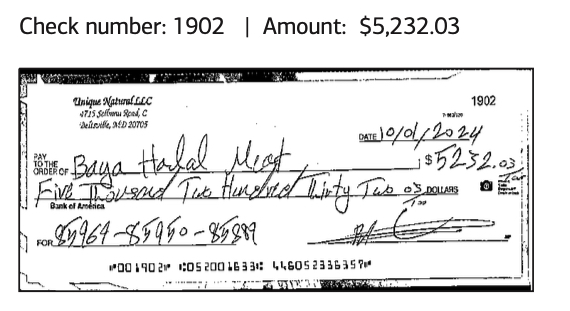 Check number: 1902 | Amount: $5,232.03
Unique Natural LLC
1902
4715 Sellman Road, C
Beltsville, MD 20705
DATE 10/01/2024
PAY TO THE ORDER OF Baya Halal Meat $5232.03
Five Thousand Two Hundred Thirty Two 03/100 DOLLARS
Bank of America
FOR 85964-85950-85889
⑈001902⑈ ⑆052001633⑆ 446052336357⑈